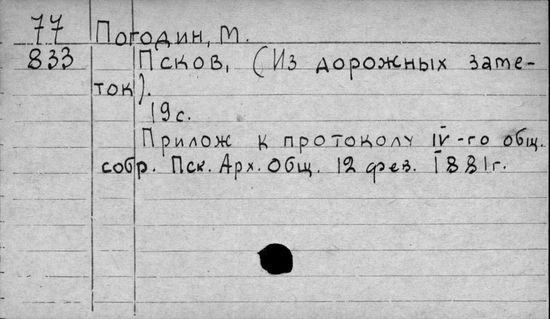 77 Погодин, М.
833 Псков, (Из дорожных заме-
ток).
19с.
Прилож к протоколу IV-го общ.
собр. Пск. Арх. Общ. 12 фев. 1881г.